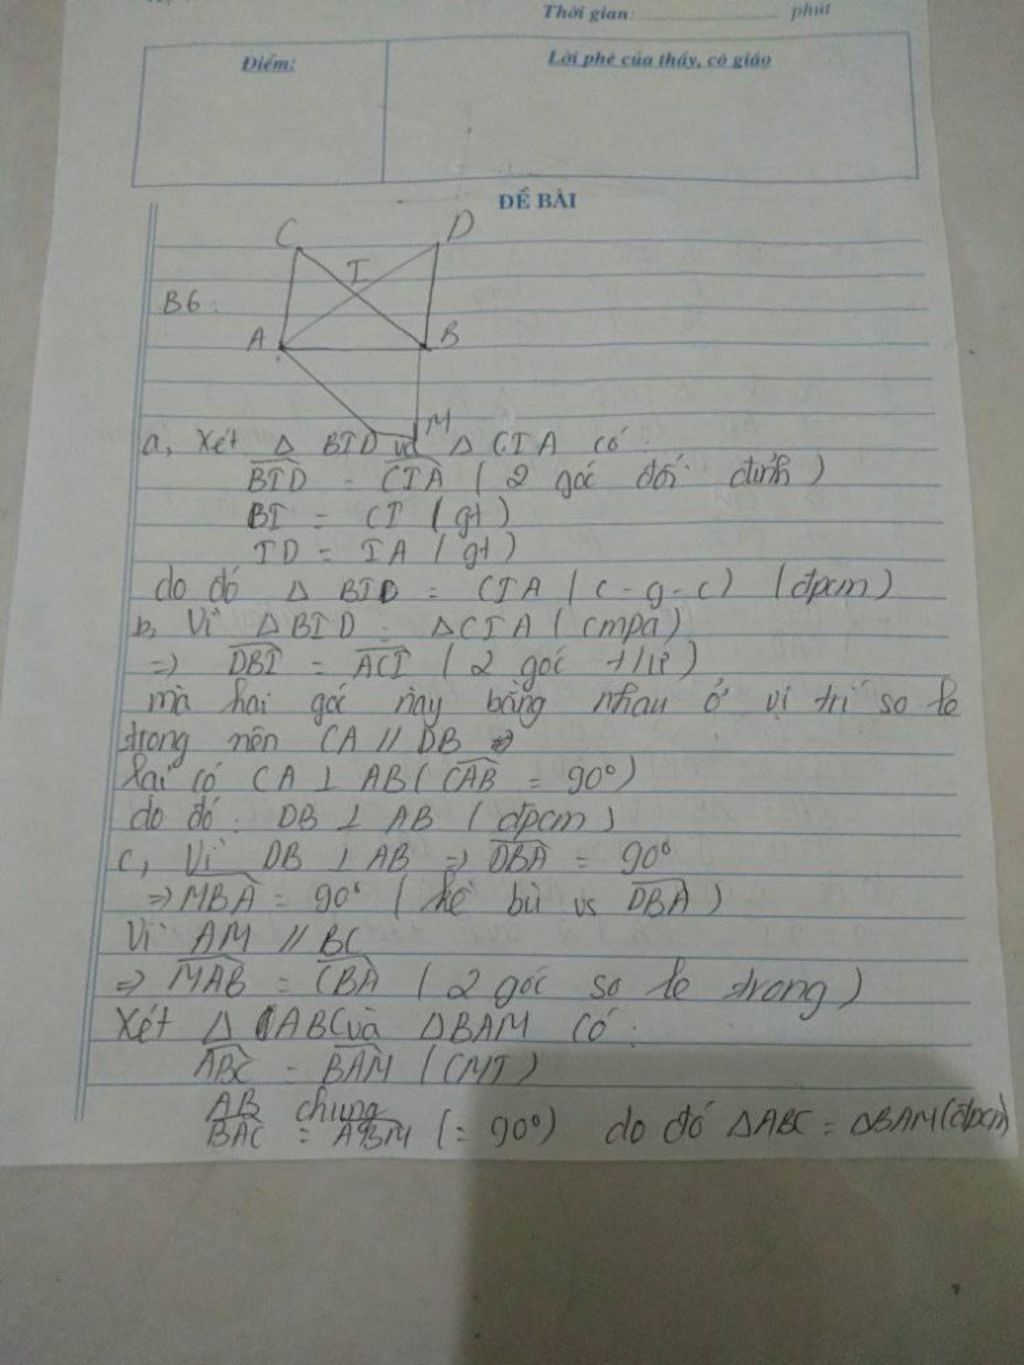 Thời gian: phút
Điểm:
Lời phê của thầy, cô giáo
ĐỀ BÀI
C D
I
B6:
A B
M
a, Xét Δ BID và Δ CIA có:
BID = CIA (2 góc đối đỉnh)
BI = CI (gt)
ID = IA (gt)
do đó Δ BID = CIA (c-g-c) (đpcm)
b, Vì ΔBID = ΔCIA (cmpa)
=> DBI = ACI (2 góc t/ư)
mà hai góc này bằng nhau ở vị trí so le
trong nên CA // DB
Lại có CA ⊥ AB (CAB = 90°)
do đó: DB ⊥ AB (đpcm)
c, Vì DB ⊥ AB => DBA = 90°
=> MBA = 90° (kề bù vs DBA)
Vì AM // BC
=> MAB = CBA (2 góc so le trong)
Xét Δ ABC và ΔBAM có:
ABC = BAM (CMT)
AB chung
BAC = ABM (= 90°) do đó ΔABC = ΔBAM (đpcm)